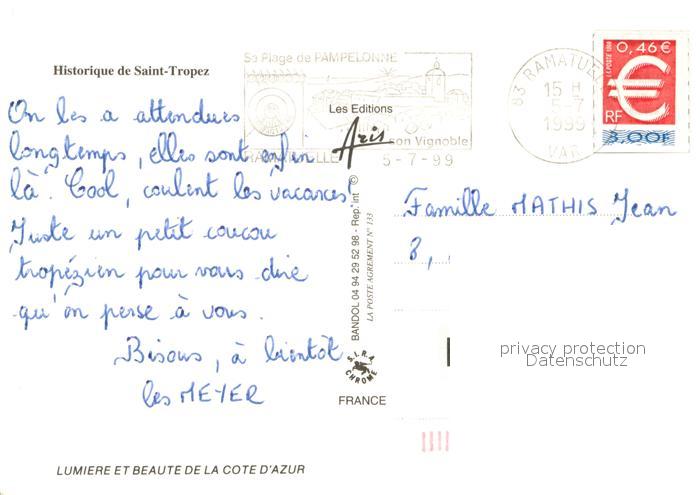 Historique de Saint-Tropez
On les a attendues
longtemps, elles sont enfin
là. Cool, coulent les vacances!
Juste un petit coucou
tropézien pour vous dire
qu'on pense à vous.
Bisous, à bientôt
les MEYER
LUMIERE ET BEAUTE DE LA COTE D'AZUR
Sa Plage de PAMPELONNE
son Vignoble
5-7-99
Les Editions
Aris
BANDOL 04 94 29 52 98 - Rep. int ©
LA POSTE AGREMENT N° 133
S.I.R.A.
CHROME
FRANCE
83 RAMATUELLE
15 H
5-7
1999
VAR
0,46 €
LA POSTE 1999
€
RF
3,00F
Famille MATHIS Jean
8,
privacy protection
Datenschutz